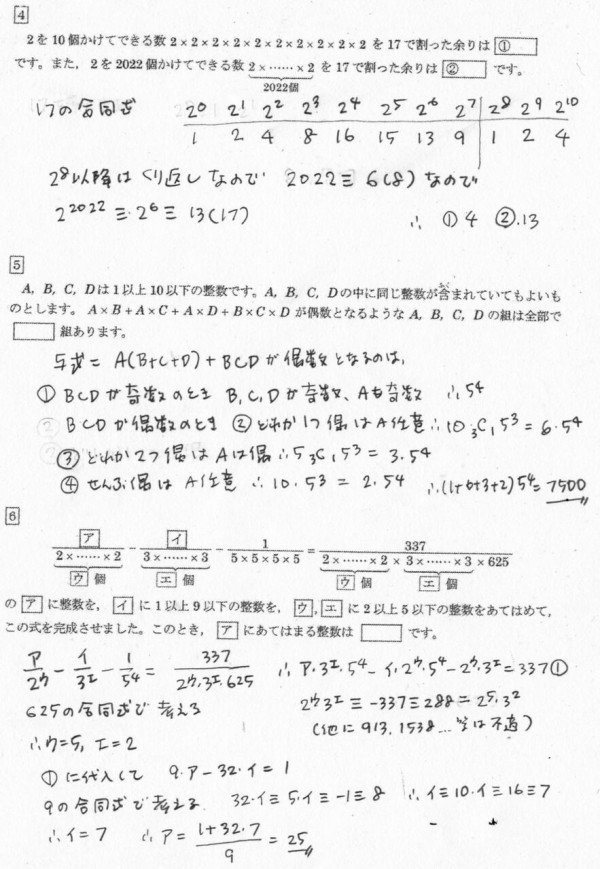 4
2を10個かけてできる数 2×2×2×2×2×2×2×2×2×2 を17で割った余りは ①
です。また，2を2022個かけてできる数 2×……×2 を17で割った余りは ② です。
2022個
17の合同式
2⁰ 2¹ 2² 2³ 2⁴ 2⁵ 2⁶ 2⁷ 2⁸ 2⁹ 2¹⁰
1 2 4 8 16 15 13 9 1 2 4
2⁸以降はくり返しなので 2022≡6(8)なので
2²⁰²²≡2⁶≡13(17) ∴ ①4 ②13
5
A，B，C，Dは1以上10以下の整数です。A，B，C，Dの中に同じ整数が含まれていてもよいも
のとします。 A×B＋A×C＋A×D＋B×C×Dが偶数となるようなA，B，C，Dの組は全部で
組あります。
与式＝ A(B+C+D)+BCDが偶数となるのは，
① BCDが奇数のとき B,C,Dが奇数、Aも奇数 ∴5⁴
BCDが偶数のとき ② どれか1つ偶はA任意∴10・₃C₁5³＝6・5⁴
③ どれか2つ偶はAは偶∴5₃C₁5³＝3・5⁴
④ ぜんぶ偶は A任意 ∴10・5³＝2・5⁴ ∴(1+6+3+2)5⁴＝7500
6
ア/2×……×2 － イ/3×……×3 － 1/5×5×5×5 ＝ 337/2×……×2×3×……×3×625
ウ個 エ個 ウ個 エ個
の ア に整数を， イ に1以上9以下の整数を， ウ，エ に2以上5以下の整数をあてはめて，
この式を完成させました。このとき， ア にあてはまる整数は です。
ア/2ウ － イ/3エ － 1/5⁴ ＝ 337/2ウ・3エ・625 ∴ア・3エ・5⁴－イ・2ウ・5⁴－2ウ・3エ＝337①
625の合同式で考える 2ウ3エ≡－337≡288＝2⁵・3²
(他に913，1538…等は不適)
∴ウ＝5，エ＝2
①に代入して 9・ア－32・イ＝1
9の合同式で考える 32・イ≡5・イ≡－1≡8 ∴イ≡10・イ≡16≡7
∴イ＝7 ∴ア＝1+32・7/9＝25